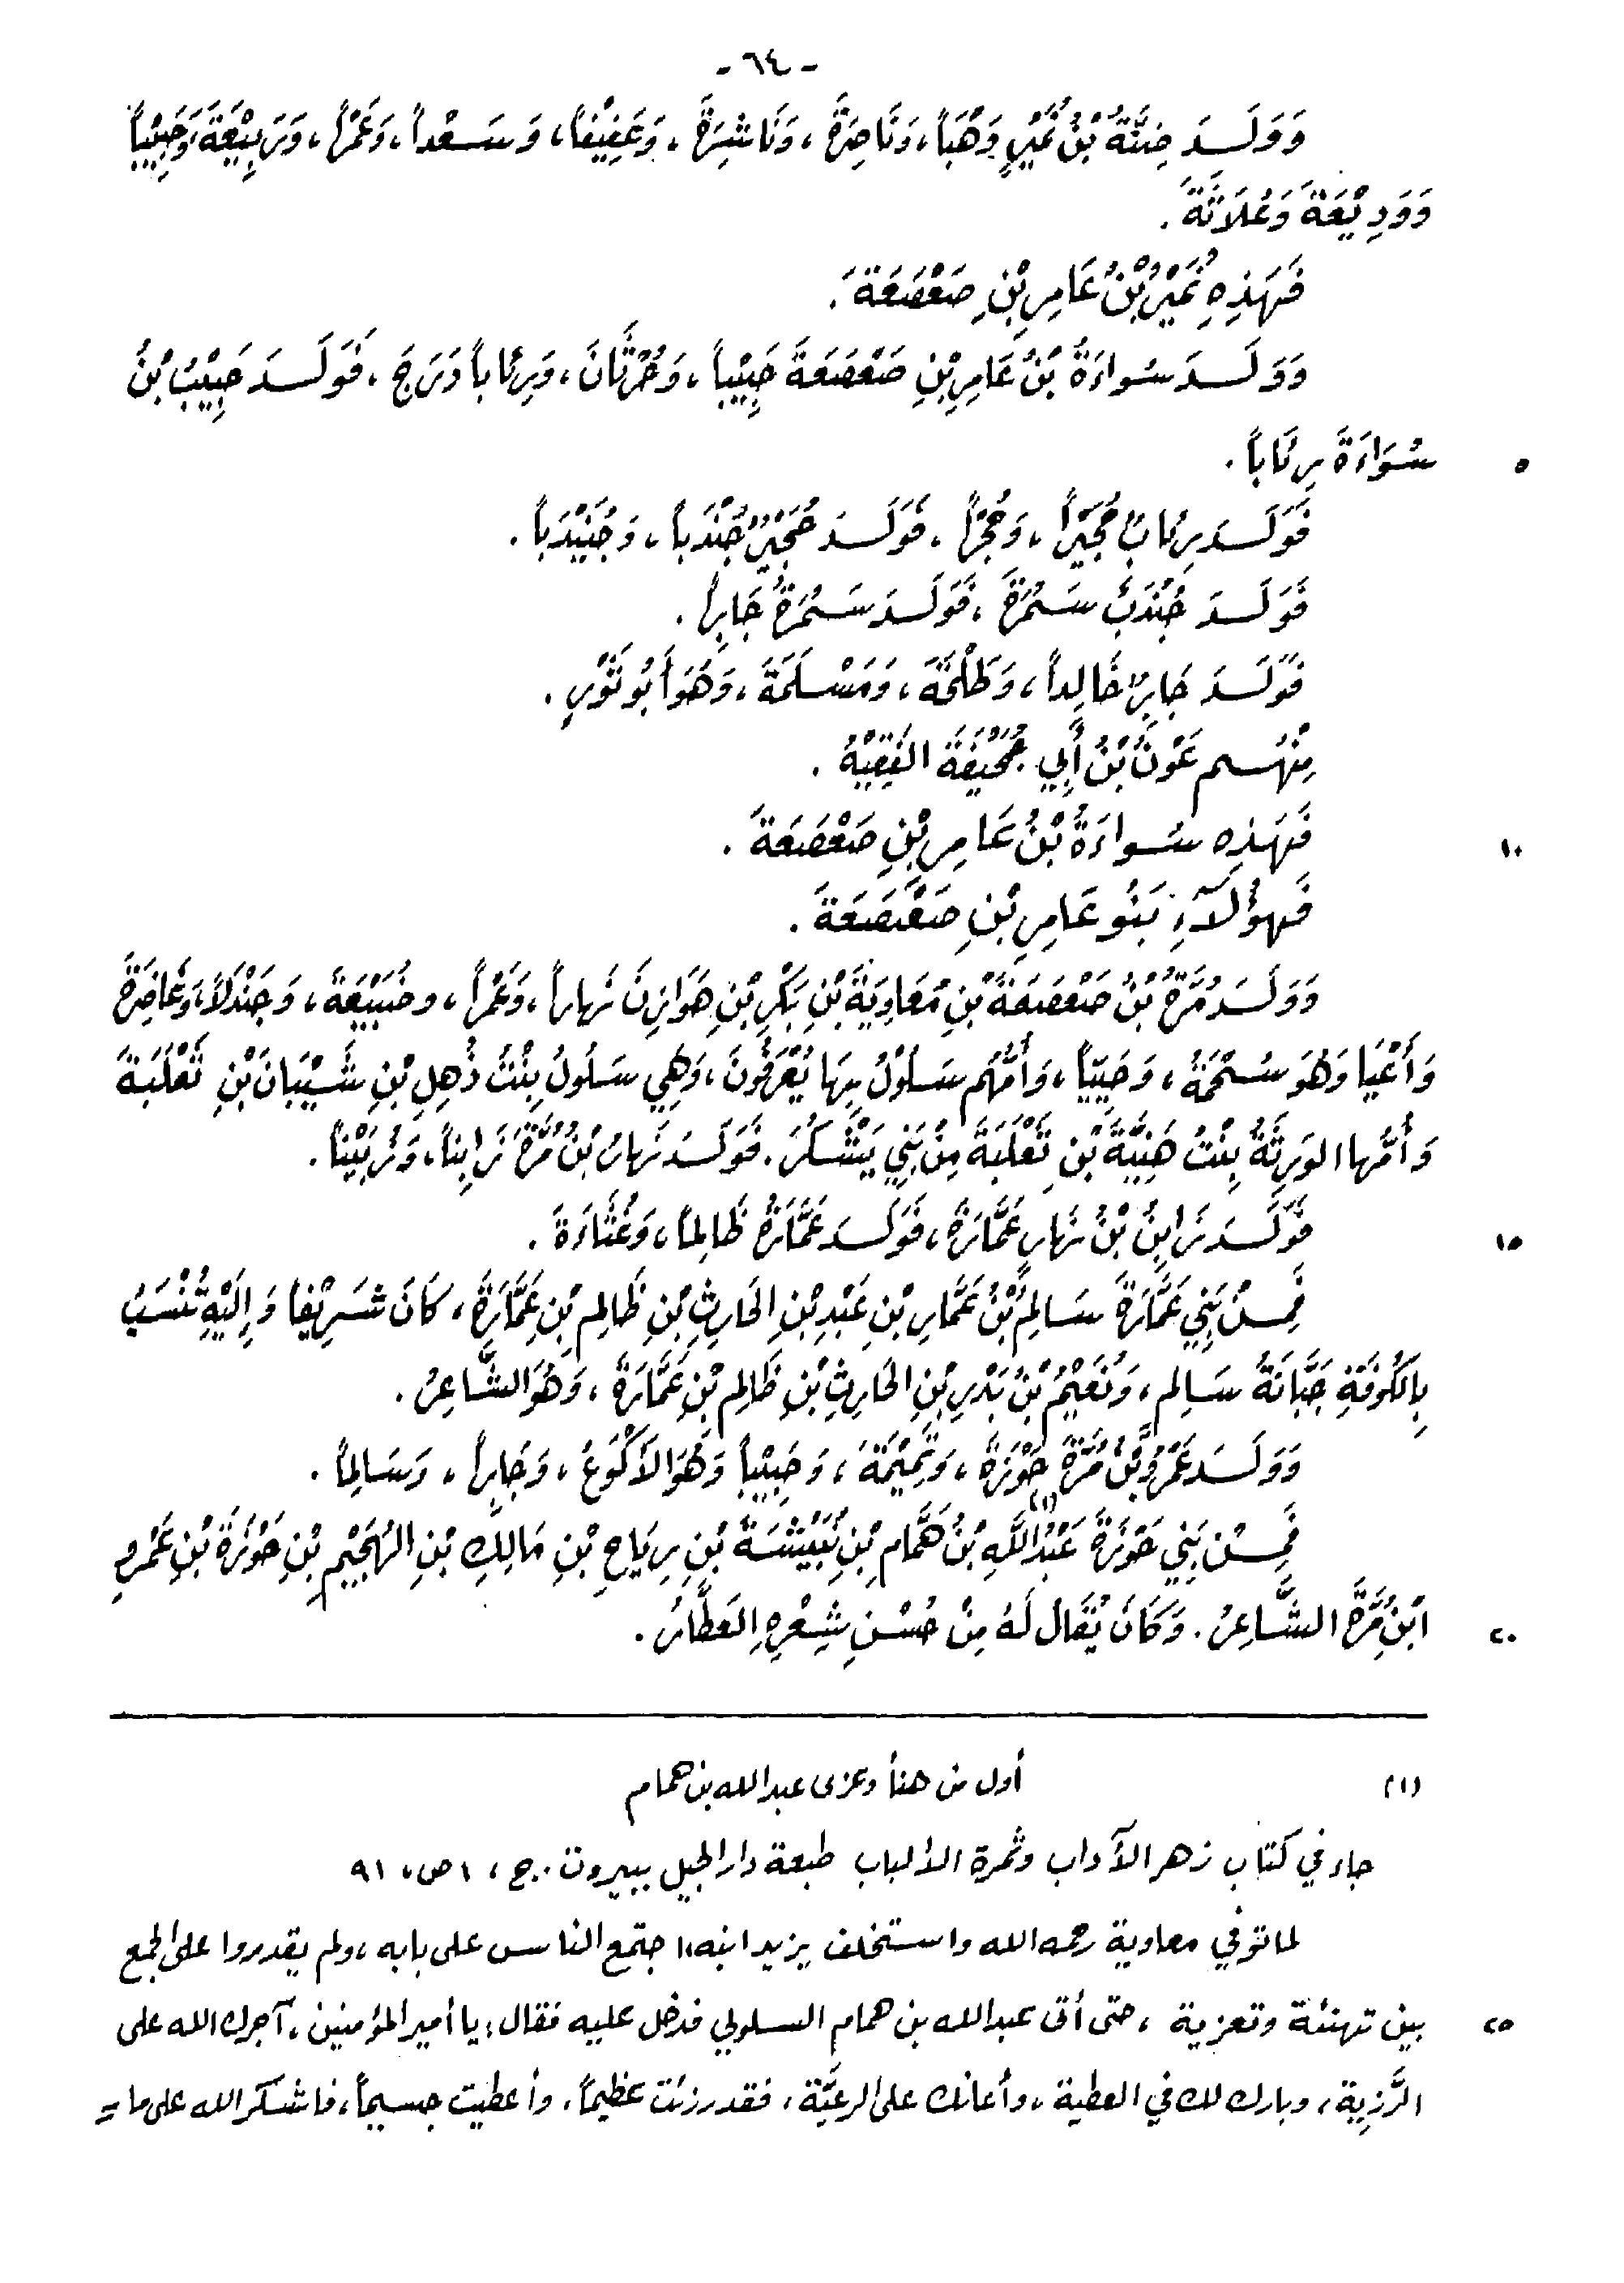 - ٦٤ -
وَوَلَدَ ضِنَّةُ بْنُ نُمَيْرٍ وَهْباً، وَنَاصِرَةَ، وَنَاشِرَةَ، وَعَفِيْفاً، وَسَعْداً، وَعَمْراً، وَرَبِيْعَةَ، وَحَبِيْباً
وَوَدِيْعَةَ وَعُلَاثَةَ.
فَهَذِهِ نُمَيْرُ بْنُ عَامِرِ بْنِ صَعْصَعَةَ.
وَوَلَدَ سُواءَةُ بْنُ عَامِرِ بْنِ صَعْصَعَةَ حَبِيْباً، وَحُرْثَانَ، وَرِئَاباً دَرَجَ، فَوَلَدَ حَبِيْبُ بْنُ
٥ سُوَاءَةَ رِئَاباً.
فَوَلَدَ رِئَابٌ حُجَيْراً، وَحُجْراً، فَوَلَدَ حُجَيْرٌ جُنْدَباً، وَجُنَيْدَباً.
فَوَلَدَ جُنْدَبٌ سَمُرَةَ، فَوَلَدَ سَمُرَةُ جَابِراً.
فَوَلَدَ جَابِرٌ خَالِداً، وَطَلْحَةَ، وَمَسْلَمَةَ، وَهُوَ أَبُو ثَوْرٍ.
مِنْهُم عَوْنُ بْنُ أَبِي جُحَيْفَةَ الفَقِيْهُ.
١٠ فَهَذِهِ سُواءَةُ بْنُ عَامِرِ بْنِ صَعْصَعَةَ.
فَهؤُلَآءِ بَنُو عَامِرِ بْنِ صَعْصَعَةَ.
وَوَلَدَ مُرَّةُ بْنُ صَعْصَعَةَ بْنِ مُعَاوِيَةَ بْنِ بَكْرِ بْنِ هَوَازِنَ نَهاراً، وَعَمْراً، وضُبَيْعَةَ، وَجَنْدَلاً، وَغَاضِرَةَ
وَأَعْيَا وَهُوَ سُحْمَةُ، وَحَيِيّاً، وَأُمُّهُم سَلُوْلُ بِهَا يُعْرَفُونَ، وَهِي سَلُولُ بِنْتُ ذُهْلِ بْنِ شَيْبَانَ بْنِ ثَعْلَبَةَ
وَأُمُّها الوَرِثَةُ بِنْتُ هَنِيَّةَ بْنِ ثَعْلَبَةَ مِنْ بَنِي يَشْكُرَ. فَوَلَدَ نَهارُ بْنُ مُرَّةَ زَابِناً، وَزُبَيْناً.
١٥ فَوَلَدَ زَابِنُ بْنُ نَهارٍ عَمَّارَةَ، فَوَلَدَ عَمَّارَةُ ظَالِماً، وَعُثَاءَةَ.
فَمِنْ بَنِي عَمَّارَةَ سَالِمُ بْنُ عَمَّارِ بْنِ عَبْدِ بْنِ الحَارِثِ بْنِ ظَالِمِ بْنِ عَمَّارَةَ، كَانَ شَرِيْفاً وَإِلَيْهِ تُنْسَبُ
بِالكُوفَةِ جَبَّانَةُ سَالِمٍ، وَنُعَيْمُ بْنُ بَدْرِ بْنِ الحَارِثِ بْنِ ظَالِمِ بْنِ عَمَّارَةَ، وَهُوَ الشَّاعِرُ.
وَوَلَدَ عَمْرُو بْنُ مُرَّةَ حَوْزَةَ، وَتَمِيْمَةَ، وَحَبِيْباً وَهُوَ الأَكْوَعُ، وَجَابِراً، وَسَالِماً.
فَمِنْ بَنِي حَوْزَةَ عَبْدُ اللَّهِ (١) بْنُ هَمَّامِ بْنِ نُبَيْشَةَ بْنِ رِيَاحِ بْنِ مَالِكِ بْنِ الهُجَيْمِ بْنِ حَوْزَةَ بْنِ عَمْرِو
٢٠ ابْنِ مُرَّةَ الشَّاعِرُ. وَكَانَ يُقَالُ لَهُ مِنْ حُسْنِ شِعْرِهِ العَطَّارُ.
(١) أول من هنأ وعزى عبدالله بن همام
جاء في كتاب زهر الآداب وثمرة الألباب طبعة دار الجيل ببيروت. ج، ١ ص، ٩١
لما توفي معاوية رحمه الله واستخلف يزيد ابنه، اجتمع الناس على بابه، ولم يقدروا على الجمع
٢٥ بين تهنئة وتعزية، حتى أتى عبدالله بن همام السلولي فدخل عليه فقال: يا أمير المؤمنين، آجرك الله على
الرَّزِية، وبارك لك في العطية، وأعانك على الرعيَّة، فقد رزئت عظيماً، وأعطيت جسيماً، فاشكر الله على ما =